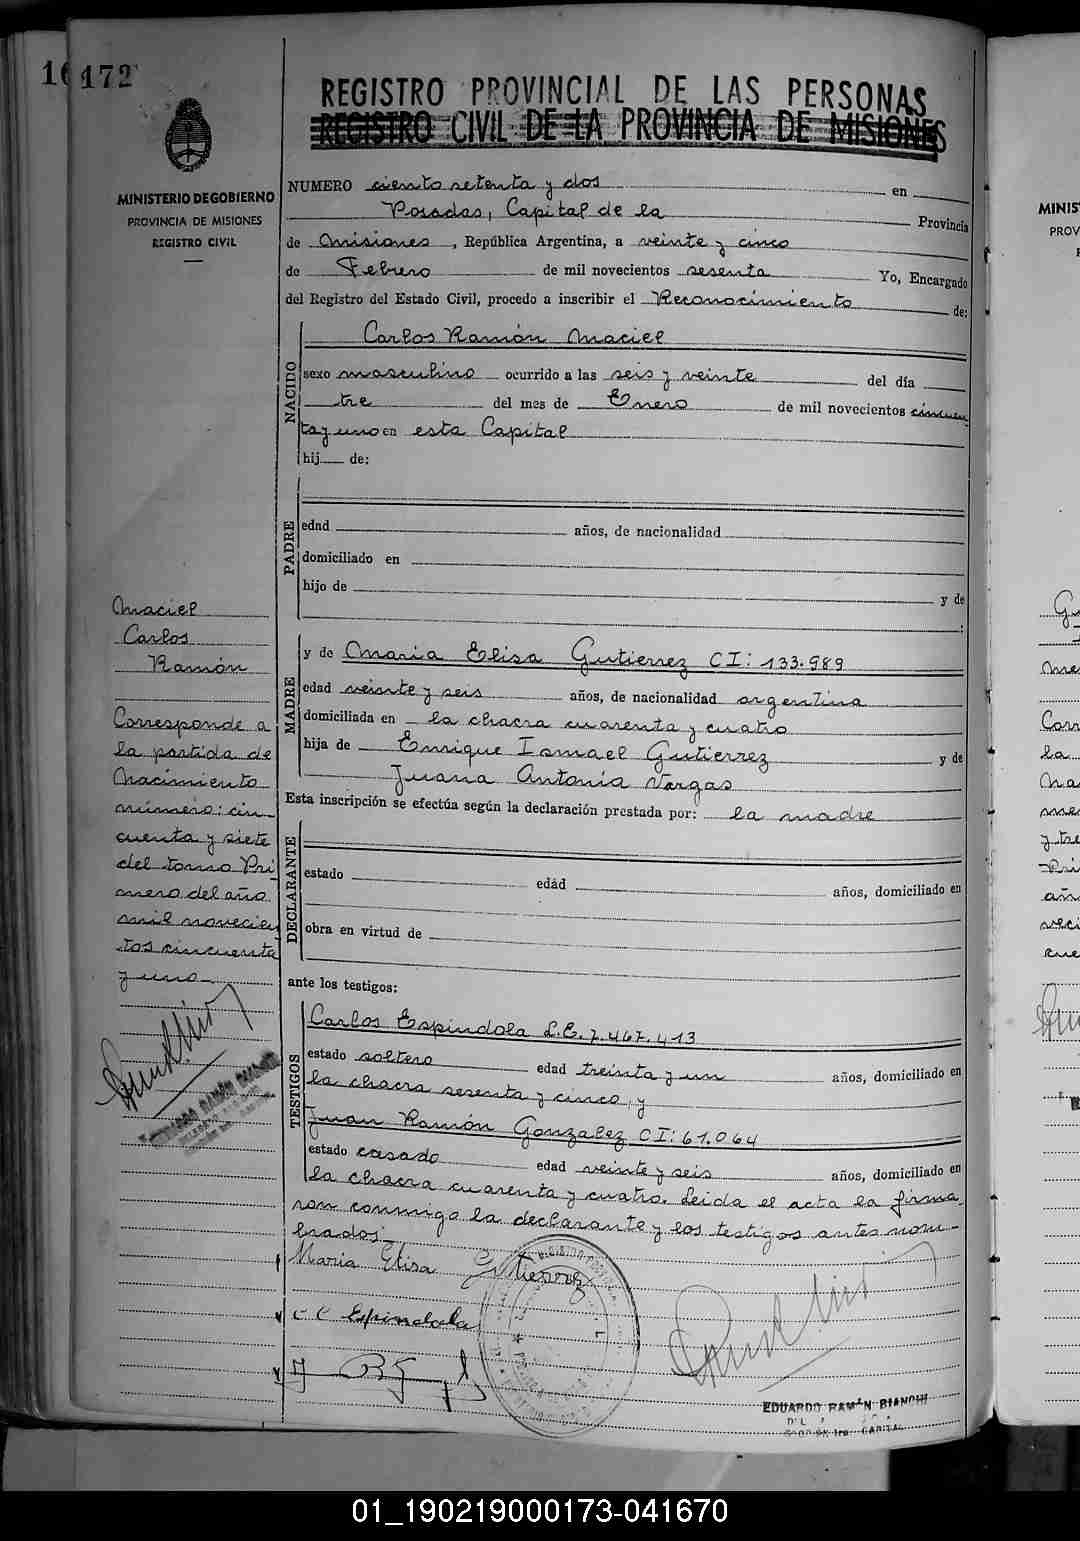 172
REGISTRO PROVINCIAL DE LAS PERSONAS
REGISTRO CIVIL DE LA PROVINCIA DE MISIONES
MINISTERIO DE GOBIERNO
PROVINCIA DE MISIONES
REGISTRO CIVIL
NUMERO ciento setenta y dos en
Posadas, Capital de la Provincia
de Misiones, República Argentina, a veinte y cinco
de Febrero de mil novecientos sesenta Yo, Encargado
del Registro del Estado Civil, procedo a inscribir el Reconocimiento de:
NACIDO
Carlos Ramón Maciel
sexo masculino ocurrido a las seis y veinte del día
tre del mes de Enero de mil novecientos cincuen
ta y uno en esta Capital
hij de:
PADRE
edad años, de nacionalidad
domiciliado en
hijo de y de
:
MADRE
y de Maria Elisa Gutierrez CI: 133.989
edad veinte y seis años, de nacionalidad argentina
domiciliada en la chacra cuarenta y cuatro
hija de Enrique Ismael Gutierrez y de
Juana Antonia Vargas
Esta inscripción se efectúa según la declaración prestada por: la madre
DECLARANTE
estado edad años, domiciliado en
obra en virtud de
ante los testigos:
TESTIGOS
Carlos Espindola L.E. 7.467.413
estado soltero edad treinta y un años, domiciliado en
la chacra sesenta y cinco, y
Juan Ramón Gonzalez CI: 61.064
estado casado edad veinte y seis años, domiciliado en
la chacra cuarenta y cuatro. Leida el acta la firma
ron conmigo la declarante y los testigos antes nom-
brados-
Maria Elisa Gutierrez
C C Espindola
EDUARDO RAMÓN BIANCHI
Maciel
Carlos
Ramón
Corresponde a
la partida de
Nacimiento
número: cin-
cuenta y siete
del tomo Pri
mero del año
mil novecien
tos cincuenta
y uno-
MINIS
PROV
01_190219000173-041670